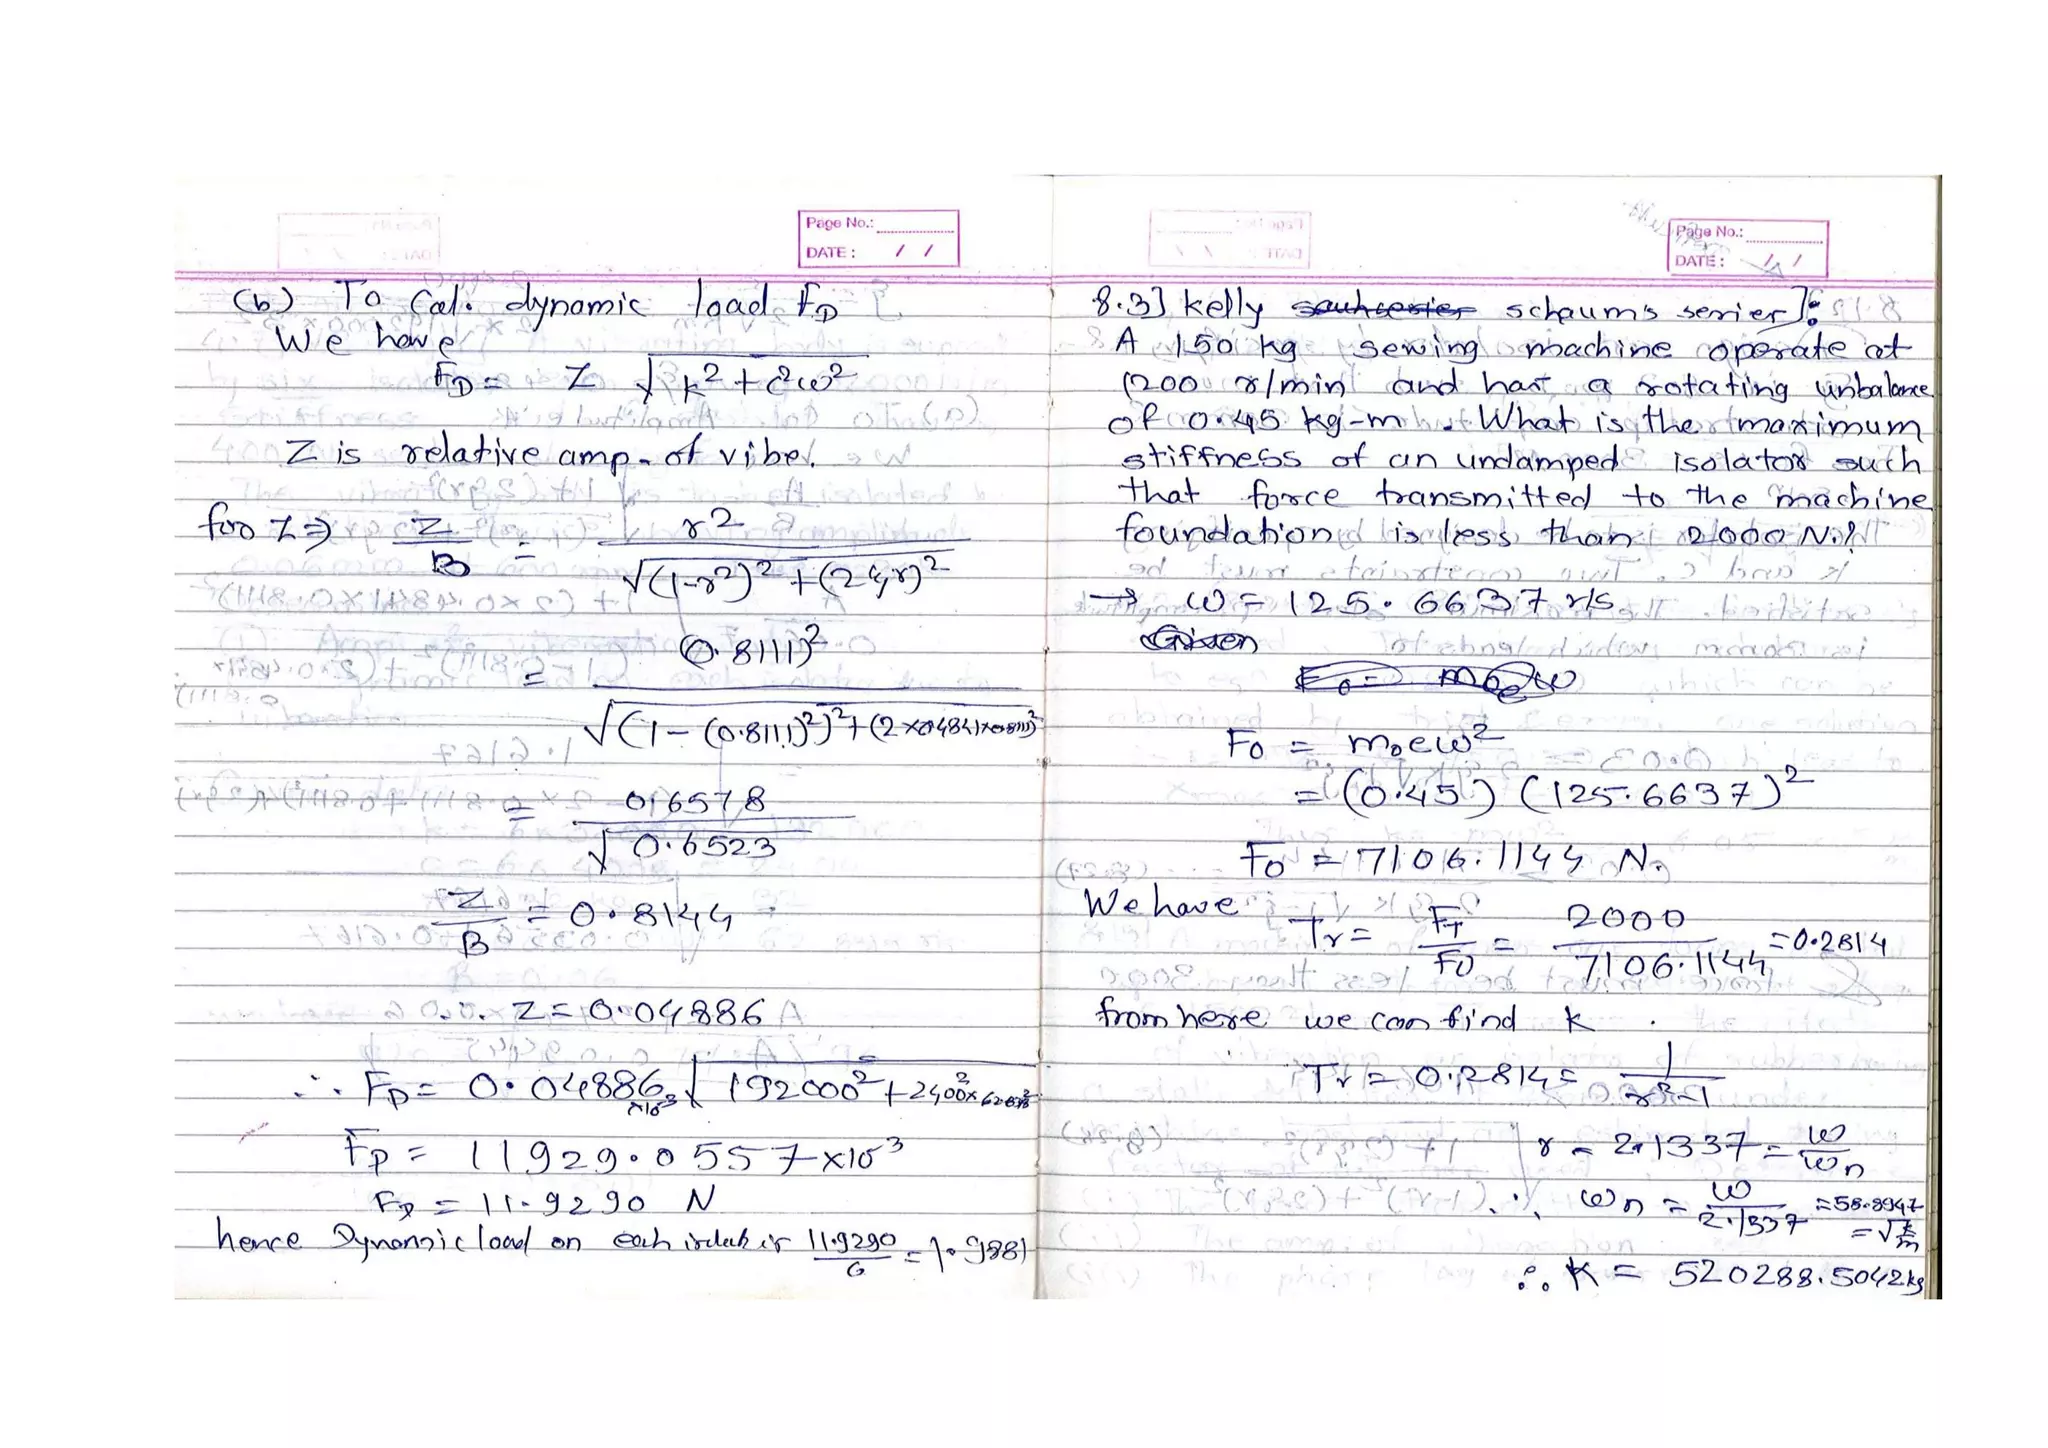 Page No.:
DATE : / /
(b) To Cal. dynamic load FD
We have
FD = Z √k² + c²ω²
Z is relative amp. of vibe.
for Z ⇒ Z/B = r² / √(1-r²)² + (2ξr)²
= (0.8111)² / √(1-(0.8111)²)² + (2×0.4841×0.8111)²
= 0.6578 / √0.6523
Z/B = 0.8144
∴ Z = 0.04886
∴ FD = 0.04886×10⁻³ √192000² + 2400²×62.838²
FD = 11929.0557×10⁻³
FD = 11.9290 N
hence Dynamic load on each is 11.9290/6 = 1.9881
Page No.:
DATE : / /
8.3] Kelly schaum's serier]:
A 150 kg sewing machine operate at
1200 r/min and has a rotating unbalance
of 0.45 kg-m. What is the maximum
stiffness of an undamped isolator such
that force transmitted to the machine
foundation is less than 2000 N.?
→ ω = 125.6637 r/s
Given
F0 = m0eω
F0 = m0eω²
= (0.45) (125.6637)²
F0 = 7106.1144 N.
We have Tr = FT/F0 = 2000/7106.1144 = 0.2814
from here we can find k.
Tr = 0.2814 = 1/r²-1
r = 2.1337 = ω/ωn
∴ ωn = ω/2.1337 = 58.8947 = √k/m
∴ K = 520288.5042kg